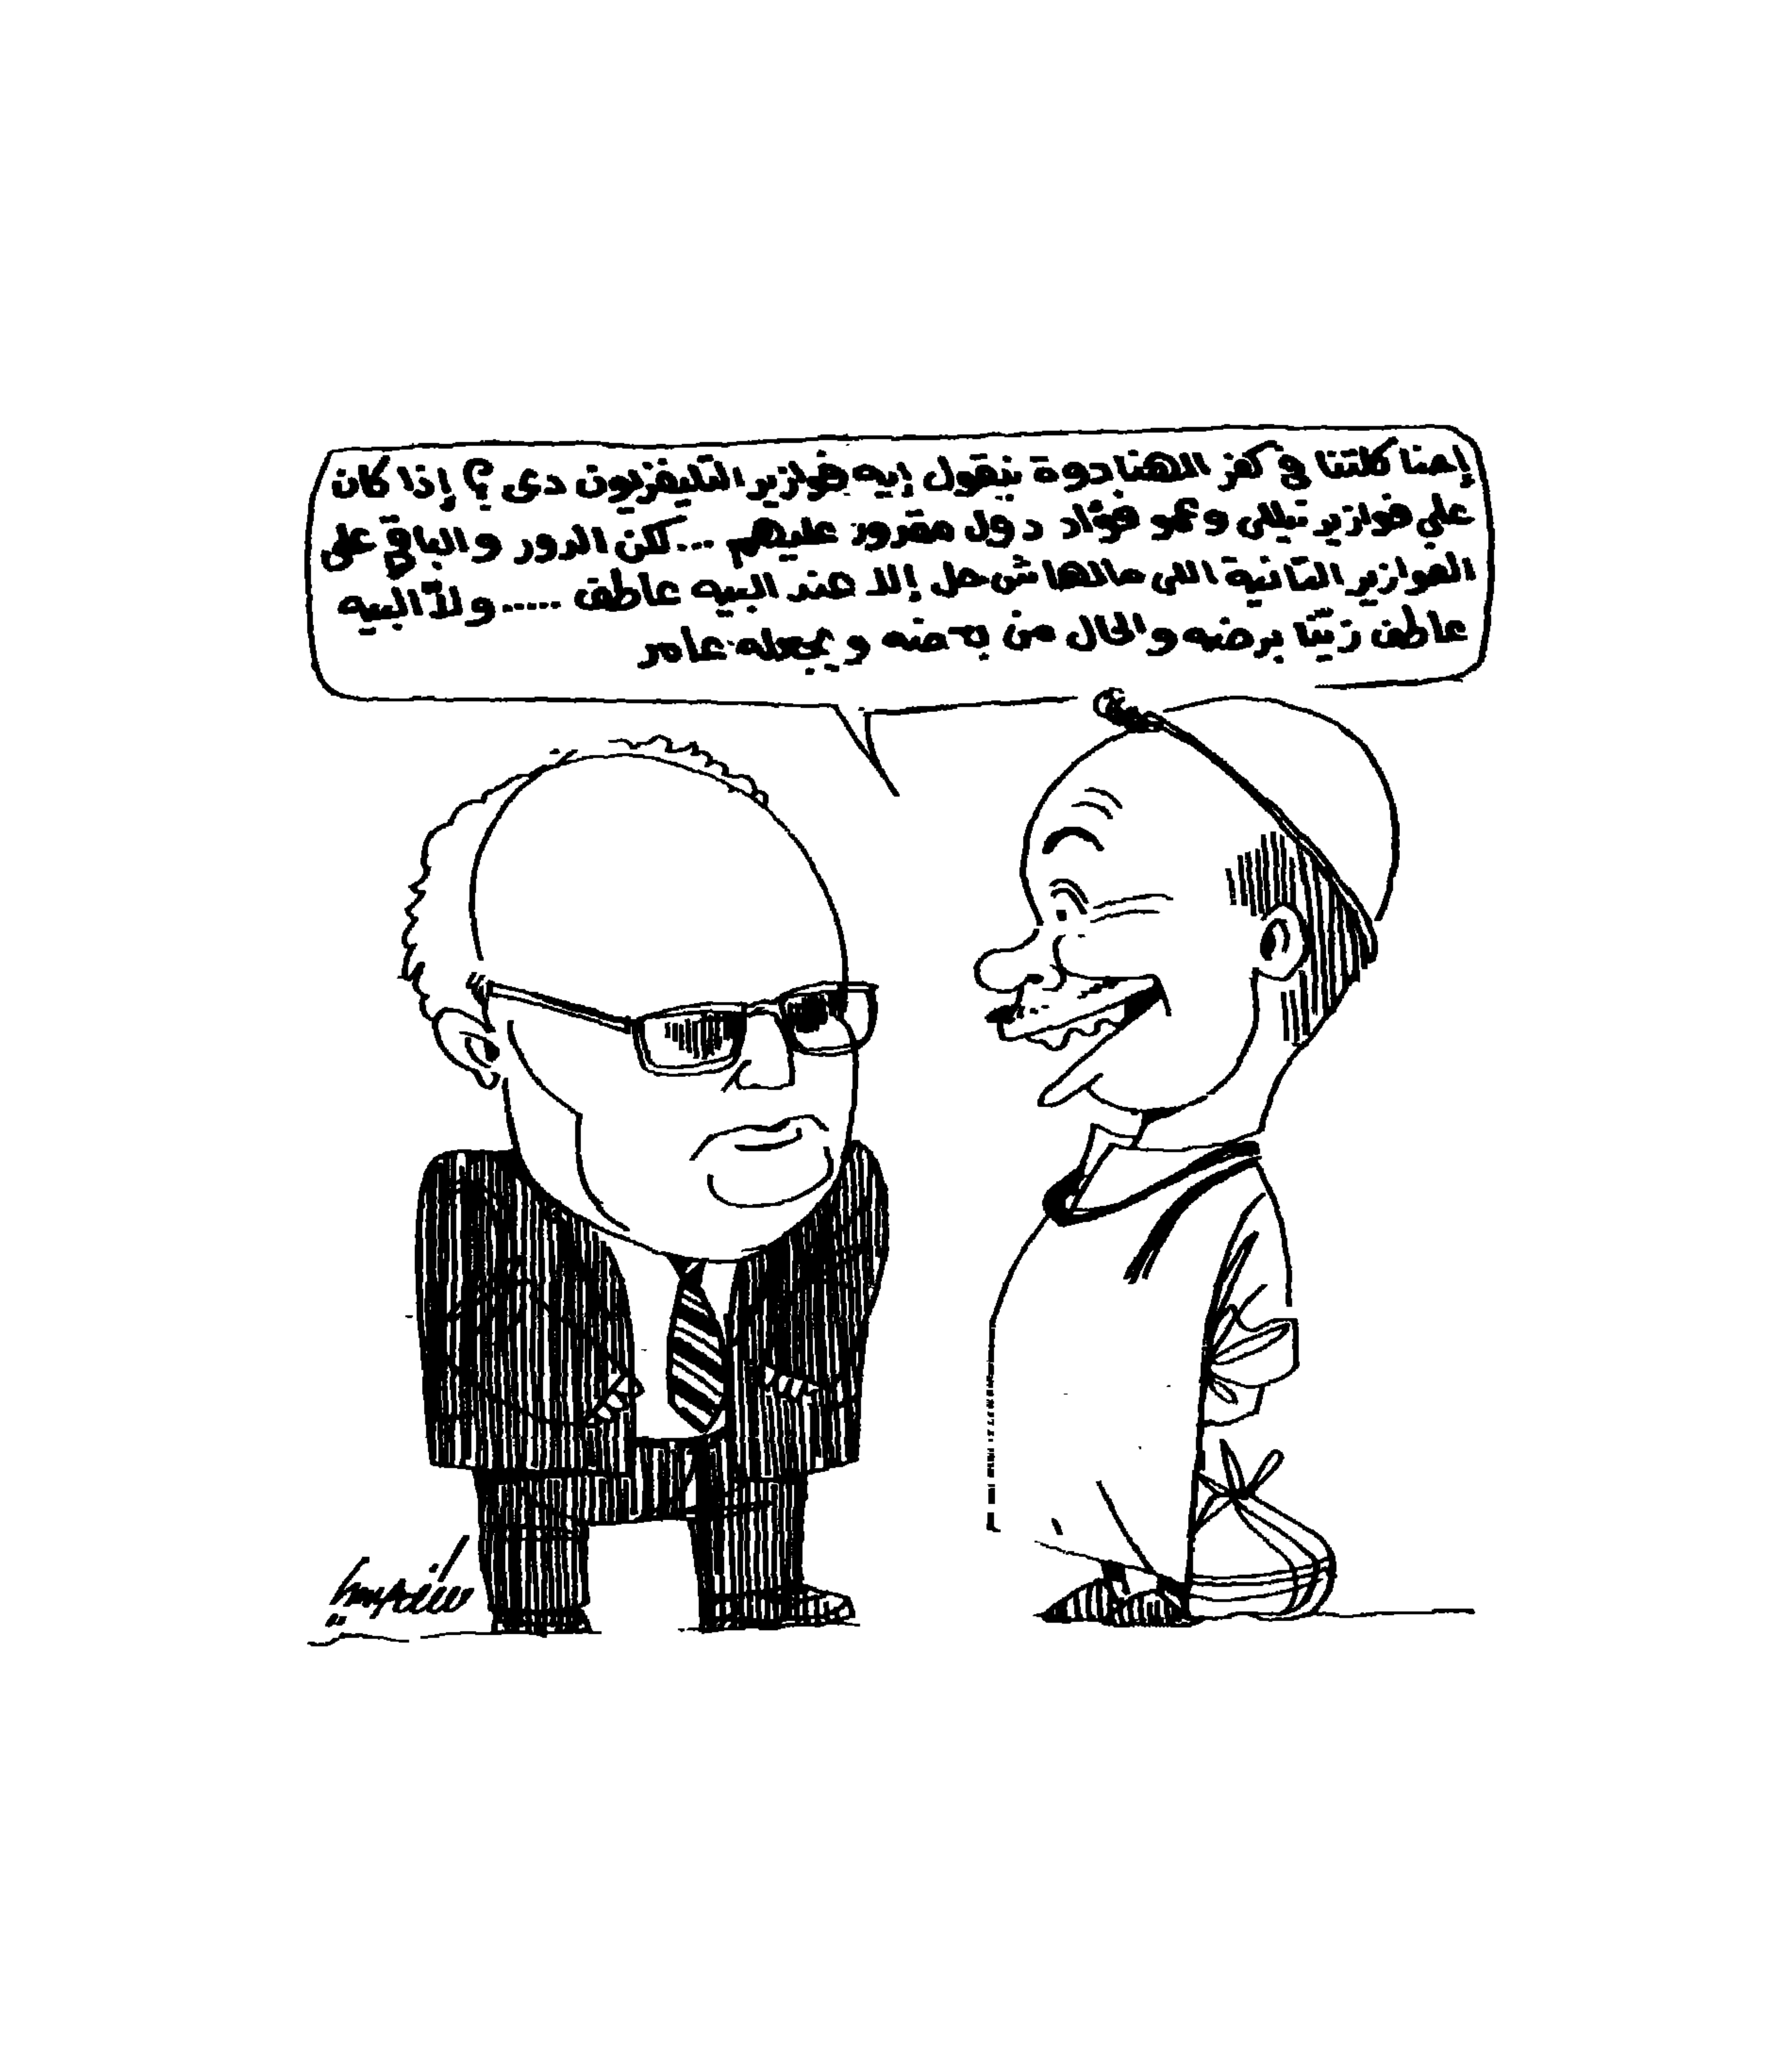 إحنا كلتنا في كفر الهنادوة بنقول إيه فوازير التليفزيون دى ؟ إذا كان
على فوازير نيللى وعمو فؤاد دول مقدور عليهم ... لكن الدور والباقى على
الفوازير التانية اللى مالهاش حل إلا عند البيه عاطف ..... ولاّ البيه
عاطف زيّنا برضه والحال من بعضه ويجعله عامر